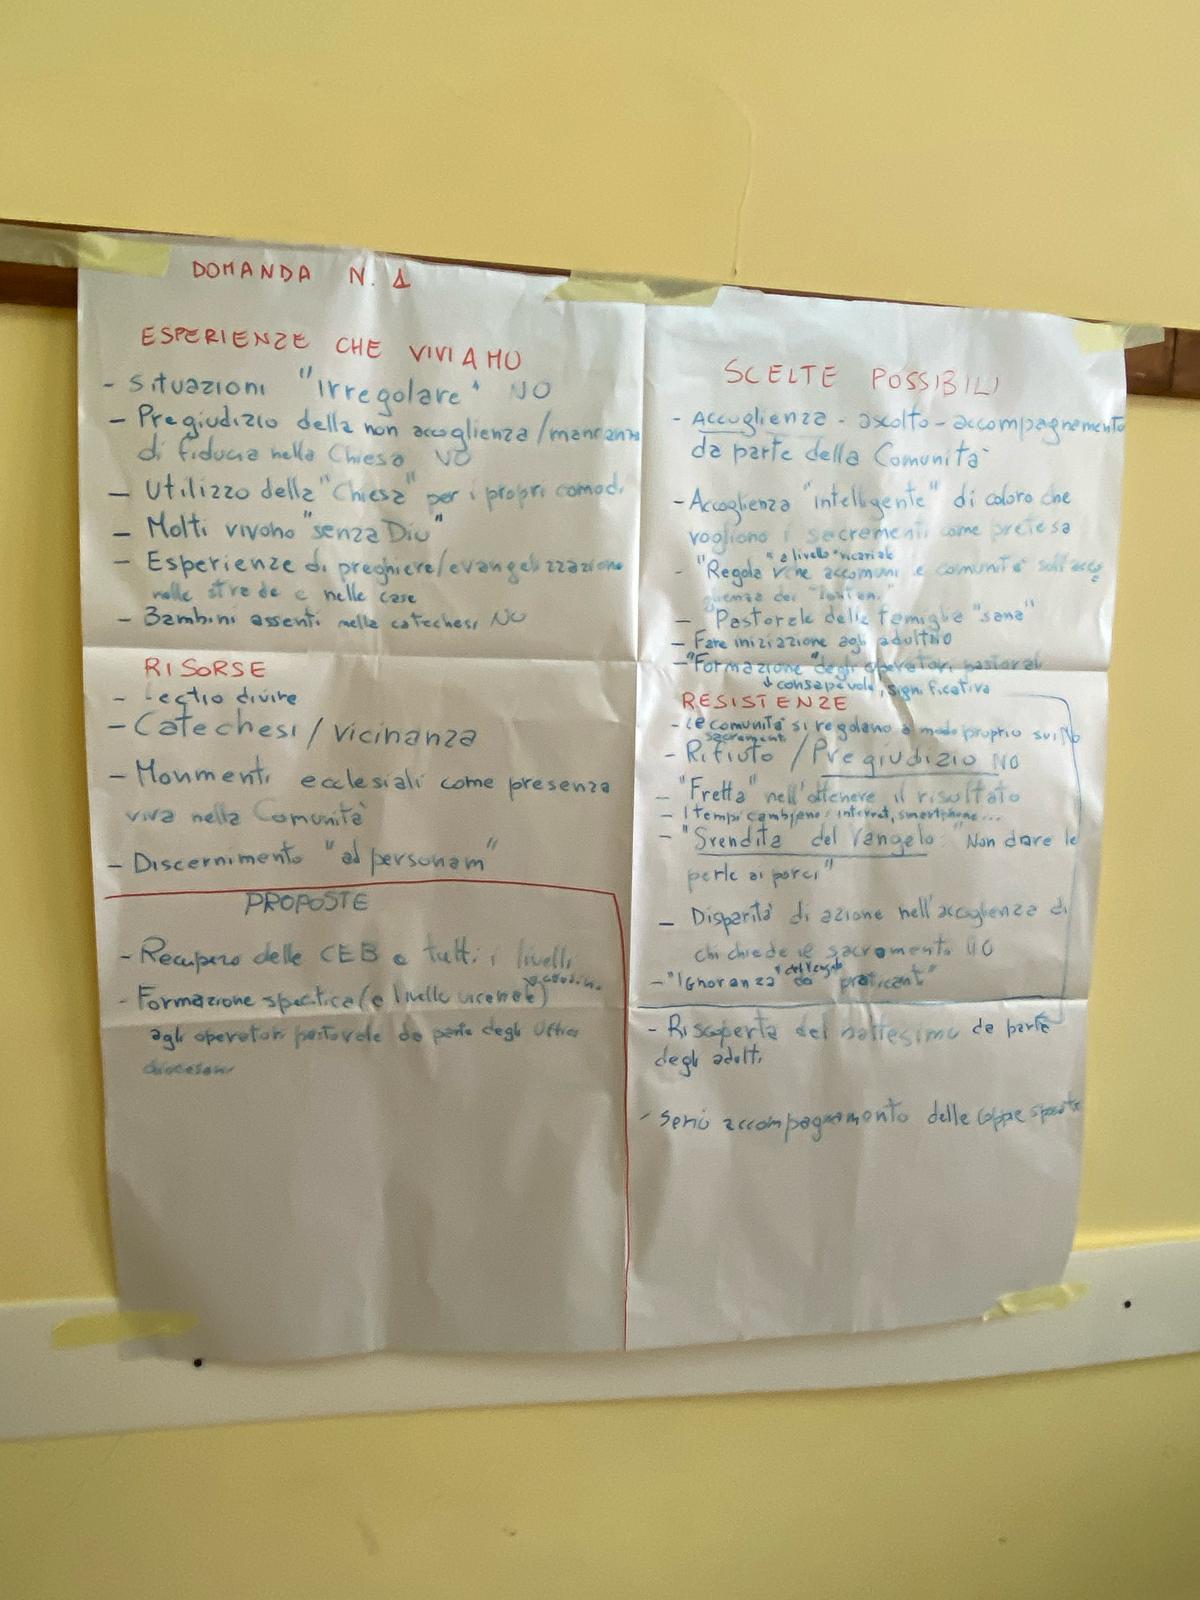 DOMANDA N. 1
ESPERIENZE CHE VIVIAMO
- Situazioni "Irregolare" NO
- Pregiudizio della non accoglienza/mancanza
di fiducia nella Chiesa NO
- Utilizzo della "Chiesa" per i propri comodi
- Molti vivono "senza Dio"
- Esperienze di preghiere/evangelizzazione
nelle strade e nelle case
- Bambini assenti nella catechesi NO
RISORSE
- Lectio divine
- Catechesi / Vicinanza
- Movimenti ecclesiali come presenza
viva nella Comunità
- Discernimento "ad personam"
PROPOSTE
- Recupero delle CEB a tutti i livelli
- Formazione specifica (a livello vicariale)
agli operatori pastorale da parte degli Uffici
diocesani
SCELTE POSSIBILI
- Accoglienza - ascolto - accompagnamento
da parte della Comunità
- Accoglienza "intelligente" di coloro che
vogliono i sacramenti come pretesa
"a livello vicariale
- "Regola
- "Pastorale delle famiglie "sana"
- Fare iniziazione agli adulti NO
- "Formazione" degli operatori pastorali
↓ consapevole, significativa
RESISTENZE
- Le comunità si regolano a modo proprio sui NO
sacramenti
- Rifiuto / Pregiudizio NO
- "Fretta" nell'ottenere il risultato
- I tempi cambiano: internet, smartphone...
- "Svendita del Vangelo: "Non dare le
perle ai porci"
- Disparità di azione nell'accoglienza di
chi chiede il sacramento NO
- "Ignoranza" "praticanti"
- Riscoperta del battesimo da parte
degli adulti
- serio accompagnamento delle coppie sposate